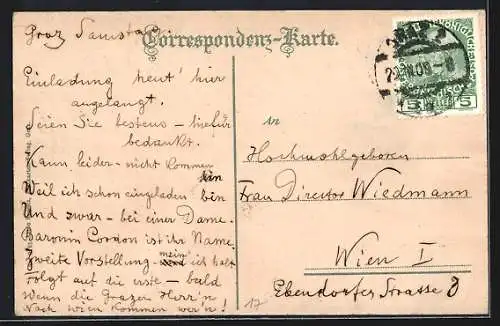 Graz Samstag
Correspondenz-Karte.
Einladung heut' hier
angelangt.
Seien Sie bestens - hiefür
bedankt.
Kann leider - nicht kommen
Weil ich schon eingeladen bin
Und zwar - bei einer Dame.
Baronin Cordon ist ihr Name.
Zweite Vorstellung - mein ich halt
Folgt auf die erste - bald
Wenn die Grazer Herr'n
Nach Wien kommen wer'n!
GRAZ
5 5
Hochwohlgeboren
Frau Director Wiedmann
Wien I
Ebendorfer Strasse 8
17